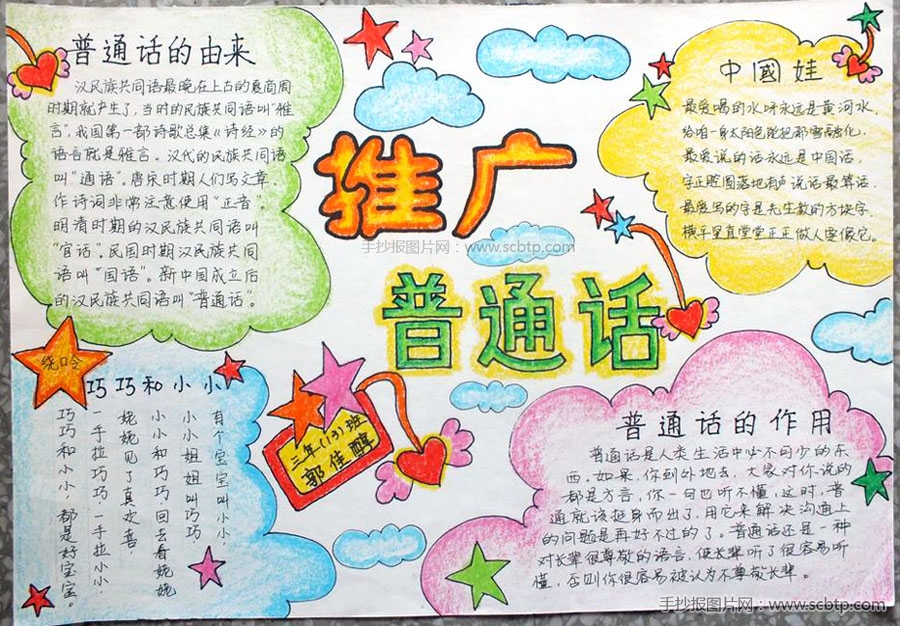 普通话的由来
汉民族共同语最晚在上古的夏商周
时期就产生了,当时的民族共同语叫“雅
言”,我国第一部诗歌总集《诗经》的
语言就是雅言。汉代的民族共同语
叫“通语”。唐宋时期人们写文章、
作诗词非常注意使用“正音”。
明清时期的汉民族共同语叫
“官话”。民国时期汉民族共同
语叫“国语”。新中国成立后
的汉民族共同语叫“普通话”。
推广
手抄报图片网:www.scbtp.com
普通话
中國娃
最爱喝的水呀永远是黄河水,
给咱一身太阳色能把那雪融化,
最爱说的话永远是中国话,
字正腔圆落地有声说话最算话,
最爱写的字是先生教的方块字,
横平竖直堂堂正正做人要像它。
绕口令
巧巧和小小
有个宝宝叫小小,
小小姐姐叫巧巧,
小小和巧巧回去看姥姥
姥姥见了真欢喜
一手拉巧巧,一手拉小小,
巧巧和小小,都是好宝宝。
三年(13)班
郭佳醇
普通话的作用
普通话是人类生活中必不可少的东
西,如果,你到外地去,大家对你说的
都是方言,你一句也听不懂,这时,普
通就该挺身而出了,用它来解决沟通上
的问题是再好不过的了。普通话还是一种
对长辈很尊敬的语言,使长辈听了很容易听
懂,否则你很容易被认为不尊敬长辈。
手抄报图片网:www.scbtp.com